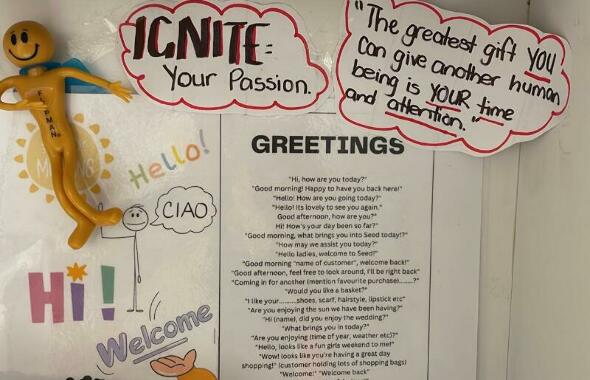 IGNITE:
Your Passion.
"The greatest gift YOU
can give another human
being is YOUR time
and attention."
Hello!
CIAO
Hi!
Welcome
GREETINGS
"Hi, how are you today?"
"Good morning! Happy to have you back here!"
"Hello! How are you going today?"
"Hello! Its lovely to see you again."
Good afternoon, how are you?"
Hi! How's your day been so far?"
"Good morning, what brings you into Seed today!?"
"How may we assist you today?"
"Hello ladies, welcome to Seed!"
"Good morning "name of customer", welcome back!"
"Good afternoon, feel free to look around, I'll be right back"
"Coming in for another (mention favourite purchase).......?"
"Would you like a basket?"
"I like your.........shoes, scarf, hairstyle, lipstick etc"
"Are you enjoying the sun we have been having?"
"Hi (name), did you enjoy the wedding?"
"What brings you in today?"
"Are you enjoying (time of year, weather etc)?"
"Hello, looks like a fun girls weekend to me!"
"Wow! looks like you're having a great day
shopping!" (customer holding lots of shopping bags)
"Welcome!" "Welcome back"